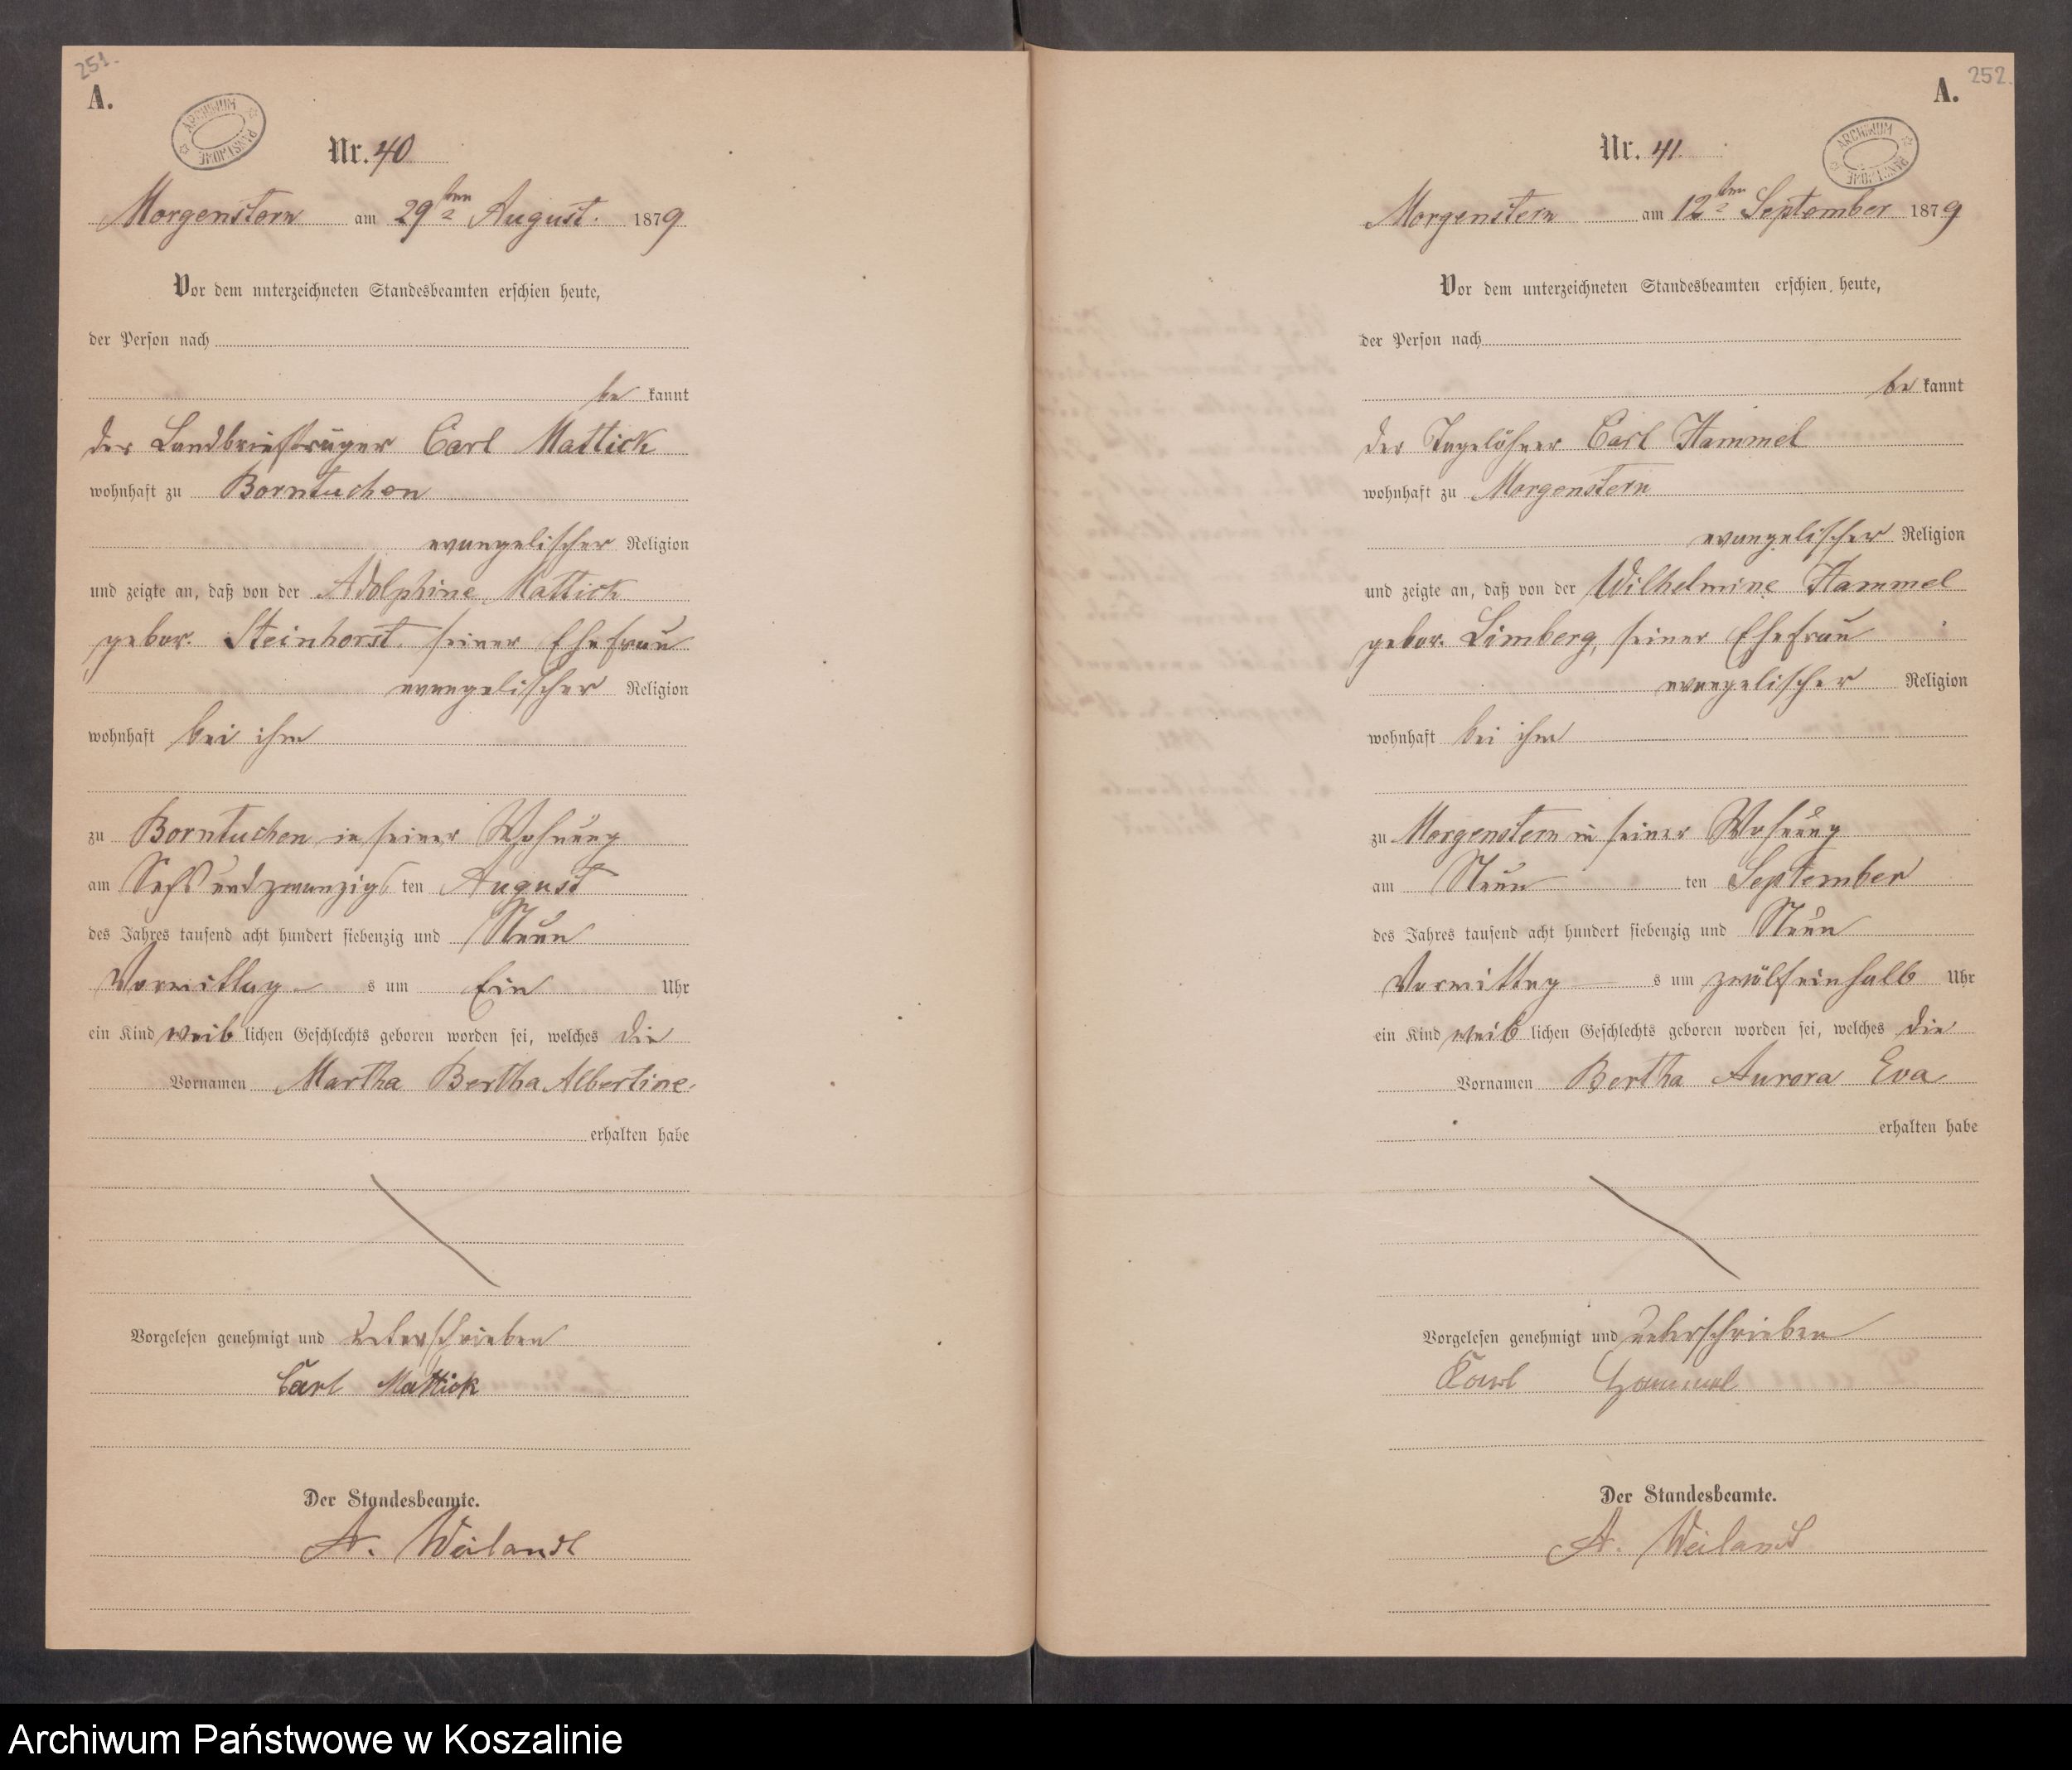 251.
A.
ARCHIWUM PAŃSTWOWE
Nr. 40
Morgenstern am 29ten August. 1879
Vor dem unterzeichneten Standesbeamten erschien heute,
der Person nach
be kannt
der Landbriefträger Carl Mattick
wohnhaft zu Borntuchen
evangelischer Religion
und zeigte an, daß von der Adolphine Mattick
gebor. Steinhorst, seiner Ehefrau
evangelischer Religion
wohnhaft bei ihm
zu Borntuchen in seiner Wohnung
am Sechs und zwanzigs ten August
des Jahres tausend acht hundert siebenzig und Neun
Vormittag s um Ein Uhr
ein Kind weib lichen Geschlechts geboren worden sei, welches die
Vornamen Martha Bertha Albertine
erhalten habe
Vorgelesen genehmigt und unterschrieben
Carl Mattick
Der Standesbeamte.
A. Weilandt
252.
A.
ARCHIWUM PAŃSTWOWE
Nr. 41.
Morgenstern am 12ten September 1879
Vor dem unterzeichneten Standesbeamten erschien heute,
der Person nach
be kannt
der Tagelöhner Carl Hammel
wohnhaft zu Morgenstern
evangelischer Religion
und zeigte an, daß von der Wilhelmine Hammel
gebor. Limberg, seiner Ehefrau
evangelischer Religion
wohnhaft bei ihm
zu Morgenstern in seiner Wohnung
am Neun ten September
des Jahres tausend acht hundert siebenzig und Neun
Vormittag s um zwölfeinhalb Uhr
ein Kind weib lichen Geschlechts geboren worden sei, welches die
Vornamen Bertha Aurora Eva
erhalten habe
Vorgelesen genehmigt und unterschrieben
Karl Hammel
Der Standesbeamte.
A. Weilandt
Archiwum Państwowe w Koszalinie